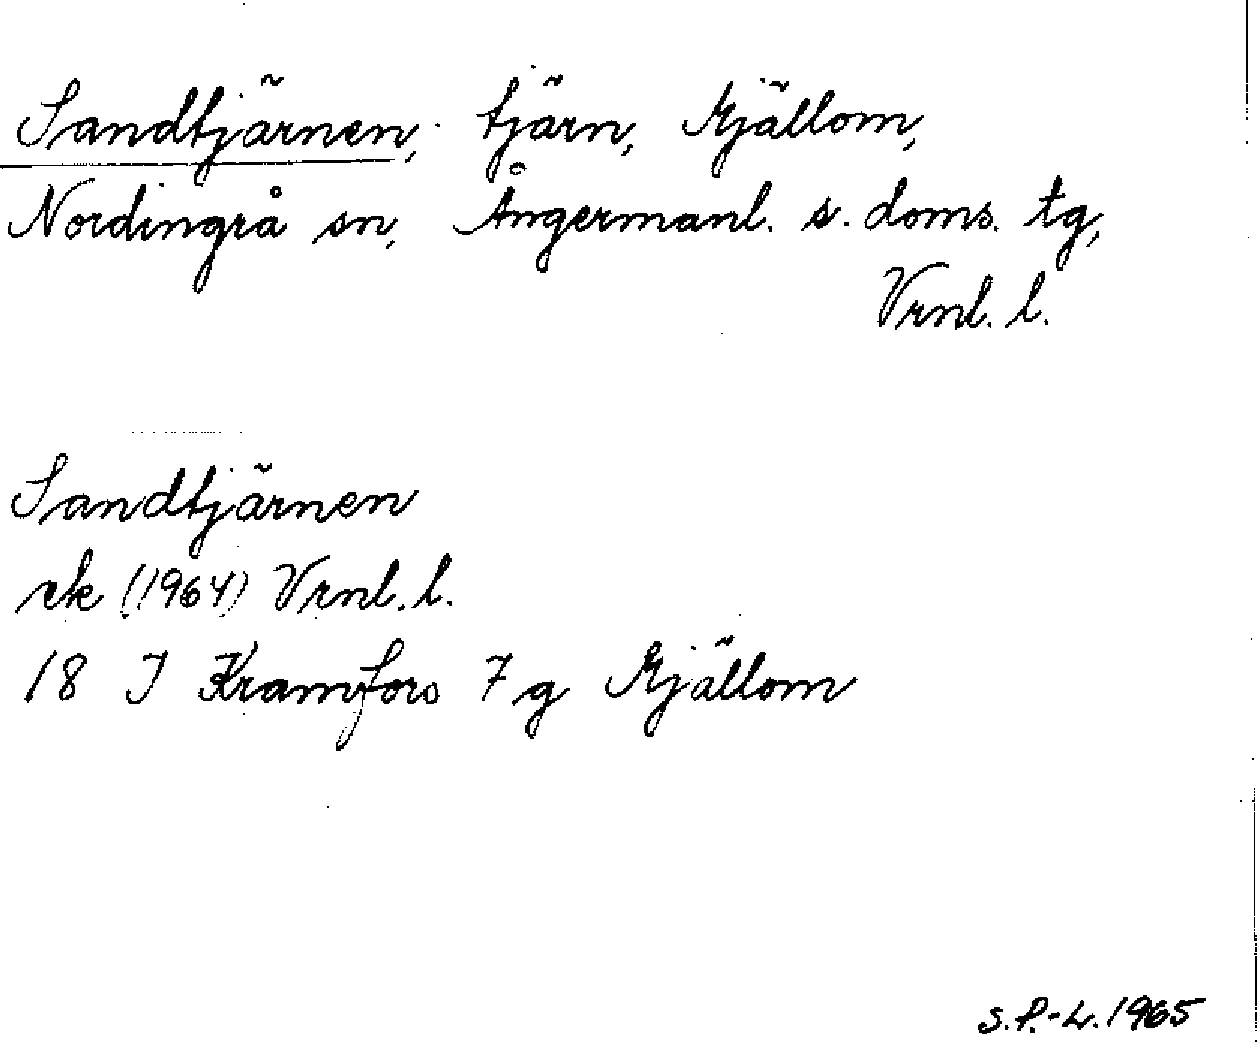 Sandtjärnen, tjärn, Mjällom,
Nordingrå sn, Ångermanl. s. doms. tg,
Vrnl. l.
Sandtjärnen
ek (1964) Vrnl. l.
18 I Kramfors 7 g Mjällom
S.P.-L. 1965